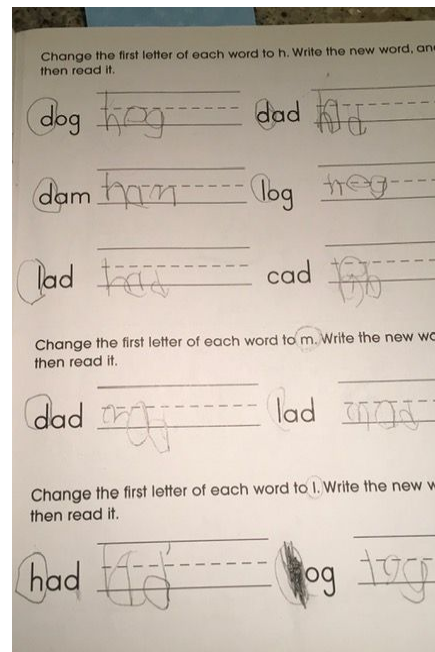 Change the first letter of each word to h. Write the new word, an
then read it.
dog hog dad had
dam ham log hog
lad had cad
Change the first letter of each word to m. Write the new wo
then read it.
dad lad mad
Change the first letter of each word to l. Write the new w
then read it.
had og log